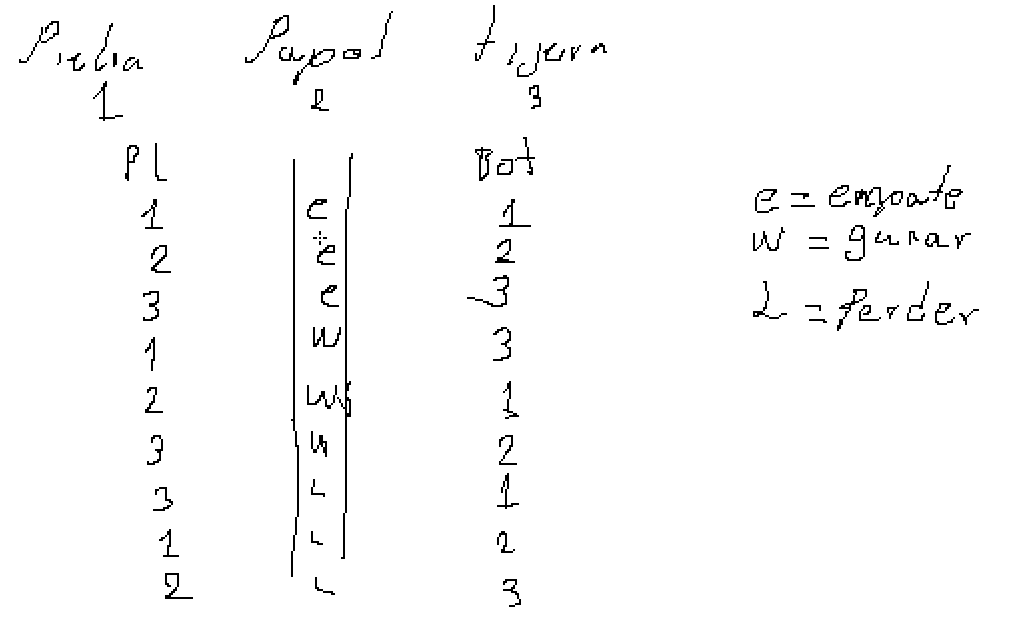 Piedra Papel tijera
1 2 3
Pl Bot
1 e 1
2 e 2
3 e 3
1 W 3
2 W 1
3 W 2
3 L 1
1 L 2
2 L 3
e = empate
W = ganar
L = Perder